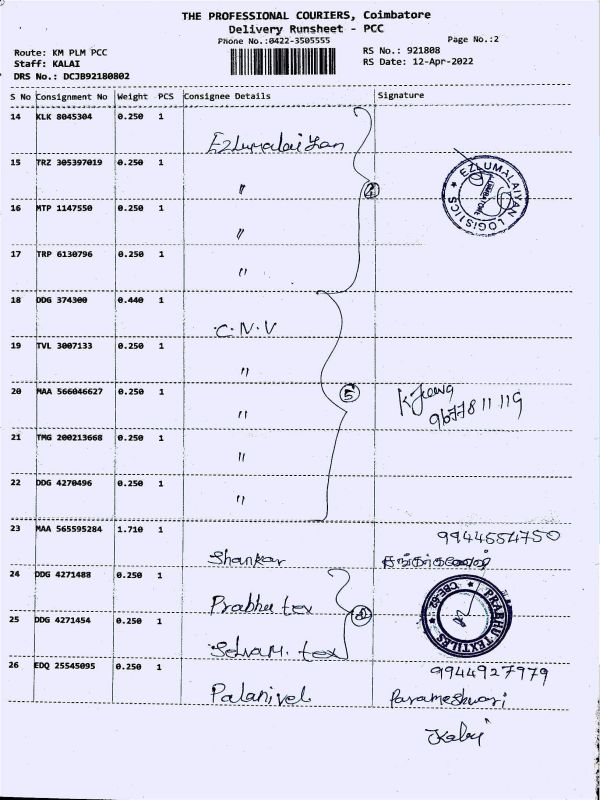 THE PROFESSIONAL COURIERS, Coimbatore
Delivery Runsheet - PCC
Phone No.:0422-3505555
Page No.:2
Route: KM PLM PCC
RS No.: 921808
Staff: KALAI
RS Date: 12-Apr-2022
DRS No.: DCJB92180802
S No Consignment No Weight PCS Consignee Details Signature
14 KLK 8045304 0.250 1
Ezlumalaiyan
15 TRZ 305397019 0.250 1
"
4
EZLUMALAIYAN LOGISTICS
16 MTP 1147550 0.250 1
"
17 TRP 6130796 0.250 1
"
18 DDG 374300 0.440 1
C.N.V
19 TVL 3007133 0.250 1
"
20 MAA 566046627 0.250 1
"
5
9677811119
21 TMG 200213668 0.250 1
"
22 DDG 4270496 0.250 1
"
23 MAA 565595284 1.710 1
9944554750
Shankar
24 DDG 4271488 0.250 1
Prabhu tex
2
PRABHU TEXTILES CBE-02
25 DDG 4271454 0.250 1
Selvam. tex
26 EDQ 25545095 0.250 1
9944927979
Palanivel Parameshwari